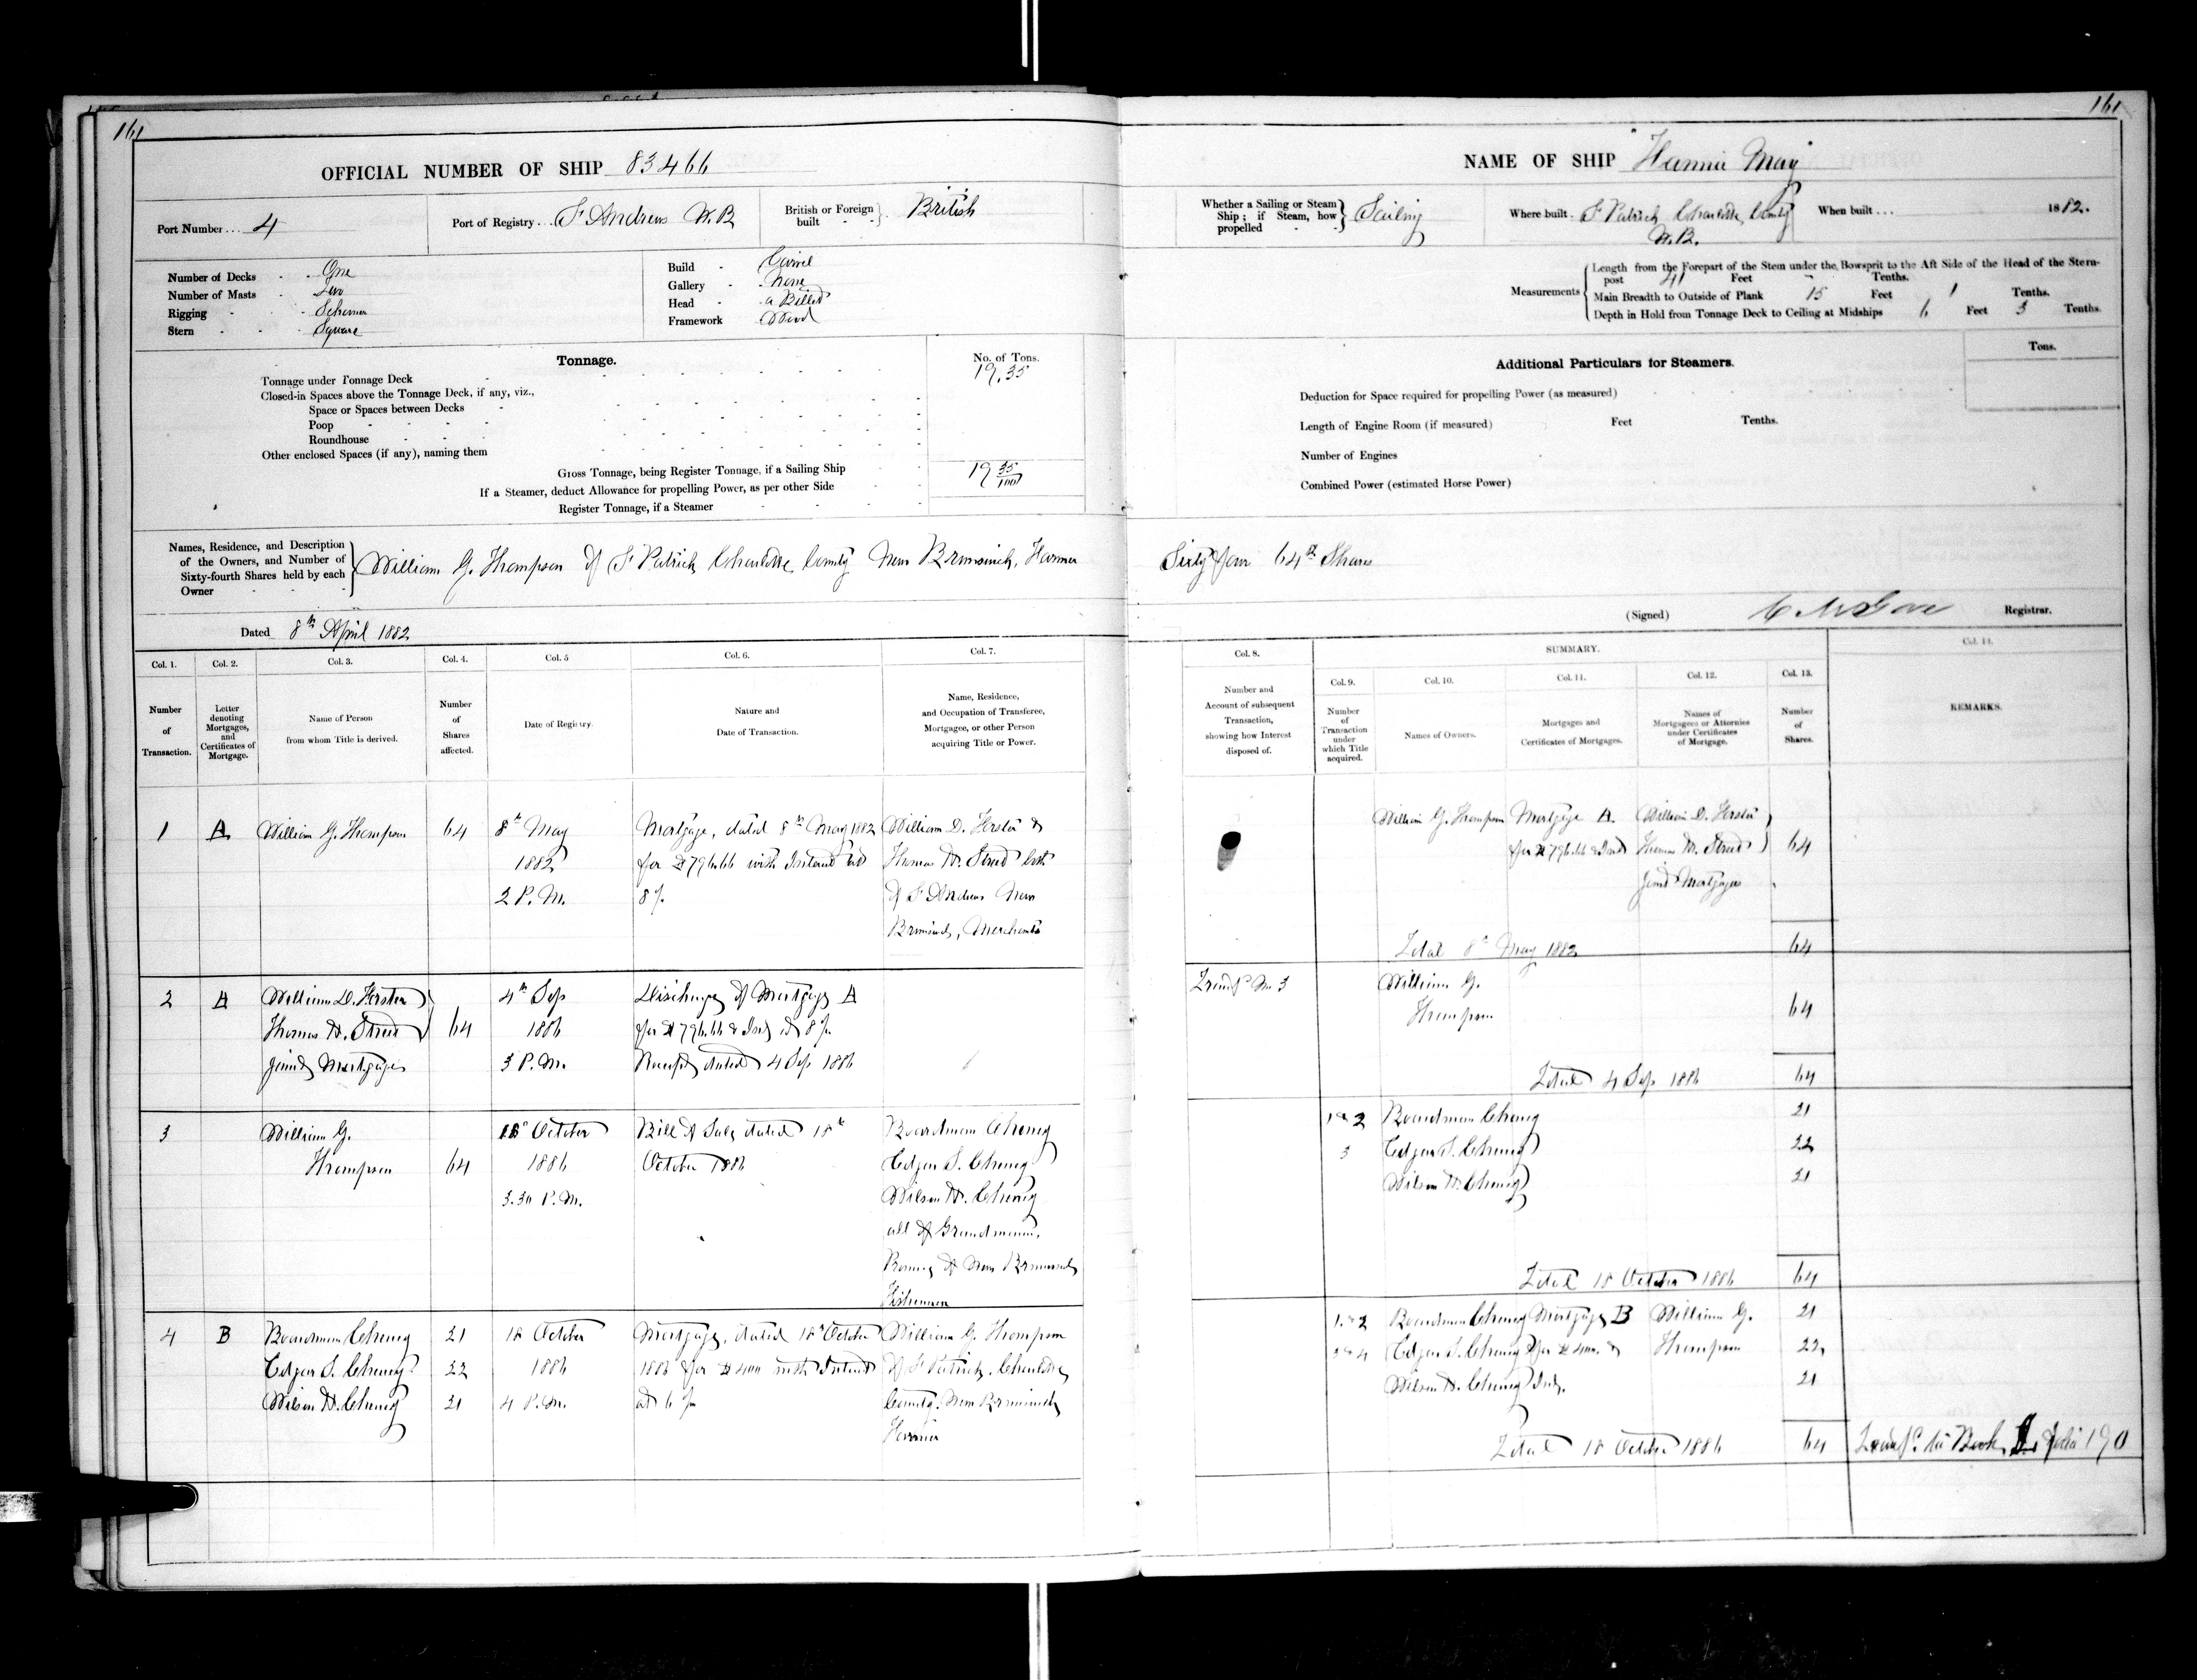 161
161
OFFICIAL NUMBER OF SHIP 83466
NAME OF SHIP Hannie May
Port Number... 4
Port of Registry... St Andrews N.B
British or Foreign built British
Whether a Sailing or Steam Ship; if Steam, how propelled Sailing
Where built St Patrick Charlotte County N.B.
When built... 1882.
Number of Decks One
Number of Masts Two
Rigging Schooner
Stern Square
Build Carvel
Gallery None
Head a Billet
Framework Wood
Measurements
Length from the Forepart of the Stem under the Bowsprit to the Aft Side of the Head of the Stern-
post 41 Feet - Tenths.
Main Breadth to Outside of Plank 15 Feet 1 Tenths.
Depth in Hold from Tonnage Deck to Ceiling at Midships 6 Feet 3 Tenths.
Tonnage.
No. of Tons.
Tonnage under Tonnage Deck 19.35
Closed-in Spaces above the Tonnage Deck, if any, viz.,
Space or Spaces between Decks
Poop
Roundhouse
Other enclosed Spaces (if any), naming them
Gross Tonnage, being Register Tonnage, if a Sailing Ship 19 35/100
If a Steamer, deduct Allowance for propelling Power, as per other Side
Register Tonnage, if a Steamer
Additional Particulars for Steamers.
Tons.
Deduction for Space required for propelling Power (as measured)
Length of Engine Room (if measured) Feet Tenths.
Number of Engines
Combined Power (estimated Horse Power)
Names, Residence, and Description
of the Owners, and Number of
Sixty-fourth Shares held by each
Owner
William G. Thompson of St Patrick Charlotte County New Brunswick, Farmer Sixty four 64th Shares
Dated 8th April 1882
(Signed) Registrar.
Col. 1.
Number
of
Transaction.
Col. 2.
Letter
denoting
Mortgages,
and
Certificates of
Mortgage.
Col. 3.
Name of Person
from whom Title is derived.
Col. 4.
Number
of
Shares
affected.
Col. 5
Date of Registry.
Col. 6.
Nature and
Date of Transaction.
Col. 7.
Name, Residence,
and Occupation of Transferee,
Mortgagee, or other Person
acquiring Title or Power.
Col. 8.
Number and
Account of subsequent
Transaction,
showing how Interest
disposed of.
SUMMARY.
Col. 9.
Number
of
Transaction
under
which Title
acquired.
Col. 10.
Names of Owners.
Col. 11.
Mortgages and
Certificates of Mortgages.
Col. 12.
Names of
Mortgagees or Attornies
under Certificates
of Mortgage.
Col. 13.
Number
of
Shares.
Col. 14.
REMARKS.
1
A
William G. Thompson
64
8th May
1882
2 P.M.
Mortgage, dated 8th May 1882
for $796.66 with Interest at
8%
William D. Forster &
Thomas W. Street both
of St Andrews New
Brunswick, Merchants
William G. Thompson
Mortgage A.
for $796.66 & Int
William D. Forster
Thomas W. Street
Joint Mortgagees
64
Total 8th May 1882 64
2
A
William D. Forster
Thomas W. Street
Joint Mortgagees
64
4th Sep
1886
3 P.M.
Discharge of Mortgage A
for $796.66 & Int at 8%
Receipt dated 4 Sep 1886
No 3
William G.
Thompson
64
Total 4 Sep 1886 64
3
William G.
Thompson
64
18 October
1886
3.30 P.M.
Bill of Sale dated 18th
October 1886
Boardman Cheney
Edgar S. Cheney
Wilson W. Cheney
all of Grandmanan,
Province of New Brunswick
Fishermen
1 & 2
3
Boardman Cheney 21
Edgar S. Cheney 22
Wilson W. Cheney 21
Total 18 October 1886 64
4
B
Boardman Cheney 21
Edgar S. Cheney 22
Wilson W. Cheney 21
18 October
1886
4 P.M.
Mortgage, dated 18th October
1886 for $400 with Interest
at 6%
William G. Thompson
of St Patrick, Charlotte
County, New Brunswick
Farmer
1 & 2
3 & 4
Boardman Cheney
Edgar S. Cheney
Wilson W. Cheney
Mortgage B
for $400 &
Int.
William G.
Thompson
21
22
21
Total 18 October 1886 64
to Book folio 190